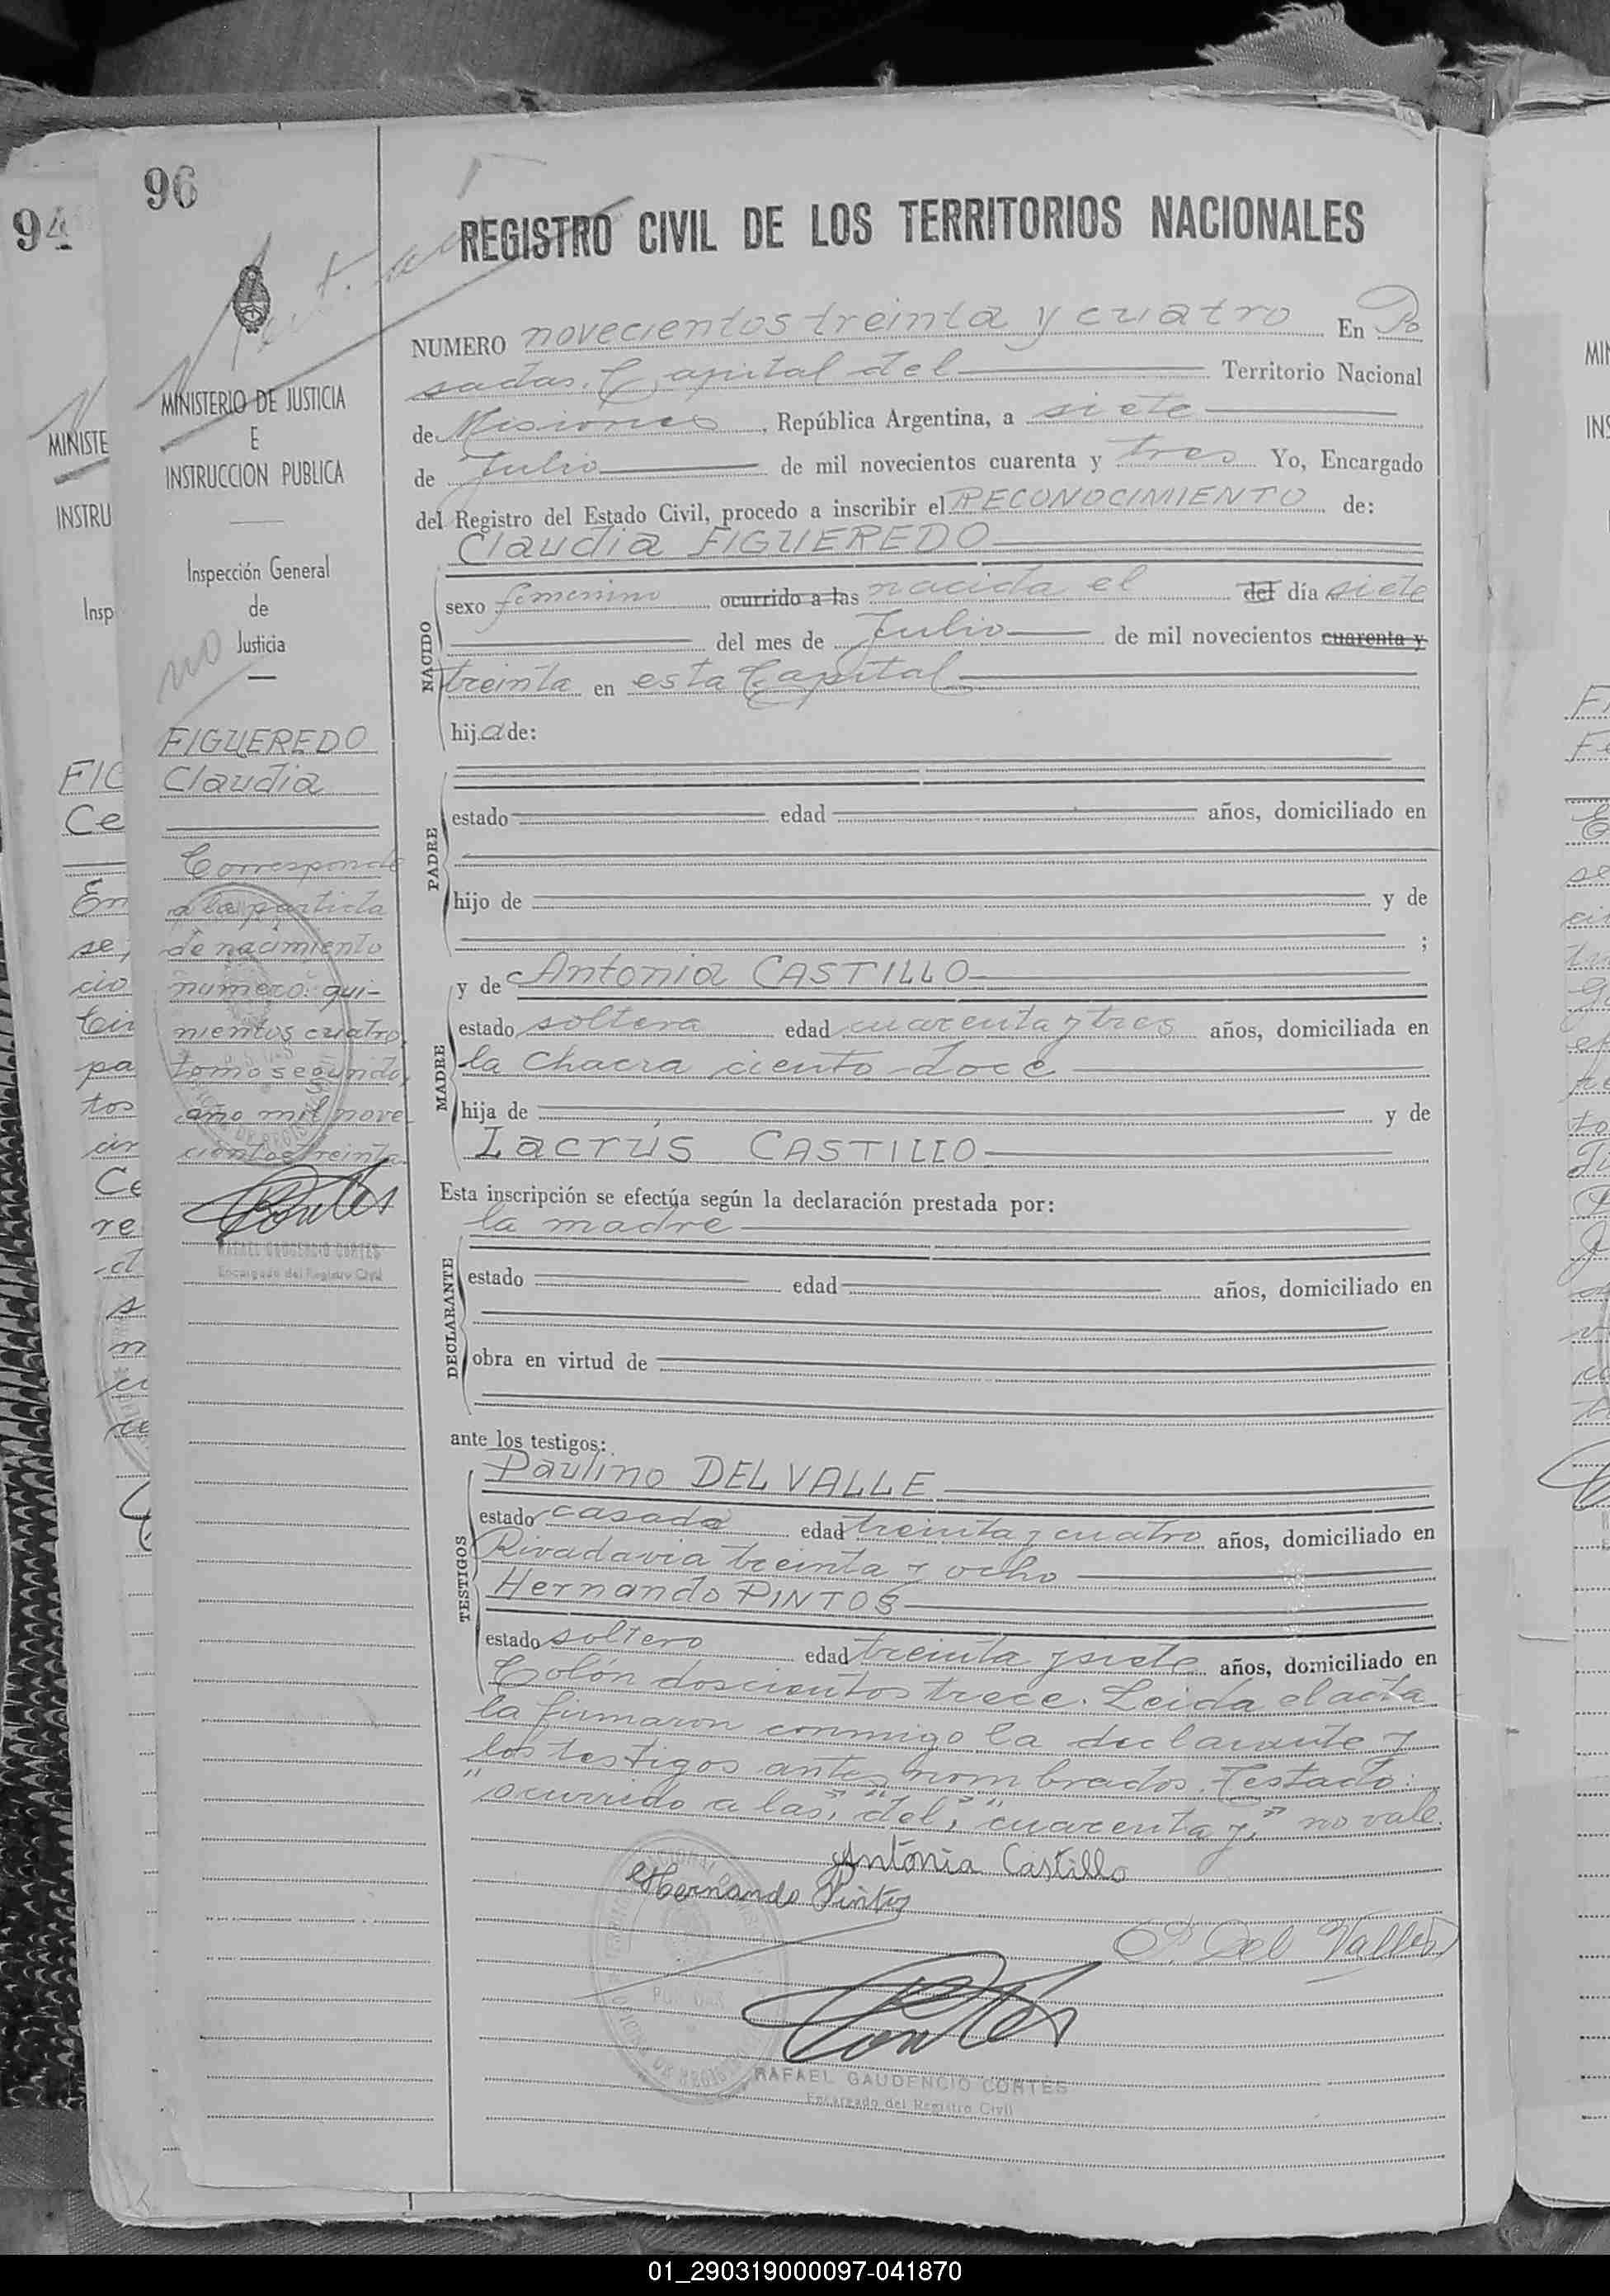 96
94
REGISTRO CIVIL DE LOS TERRITORIOS NACIONALES
MINISTERIO DE JUSTICIA
E
INSTRUCCION PUBLICA
Inspección General
de
Justicia
no
FIGUEREDO
Claudia
Corresponde
a la partida
de nacimiento
numero: qui-
nientos cuatro,
tomo segundo,
año mil nove-
cientos treinta.
Cortes
RAFAEL GAUDENCIO CORTES
Encargado del Registro Civil
NUMERO novecientos treinta y cuatro En Po
sadas, Capital del Territorio Nacional
de Misiones, República Argentina, a siete
de Julio de mil novecientos cuarenta y tres Yo, Encargado
del Registro del Estado Civil, procedo a inscribir el RECONOCIMIENTO de:
Claudia FIGUEREDO
NACIDO
sexo femenino ocurrido a las nacida el del día siete
del mes de Julio de mil novecientos cuarenta y
treinta en esta Capital
hija de:
PADRE
estado edad años, domiciliado en
hijo de y de
;
y de Antonia CASTILLO
MADRE
estado soltera edad cuarenta y tres años, domiciliada en
la chacra ciento doce
hija de y de
Lacrús CASTILLO
Esta inscripción se efectúa según la declaración prestada por:
la madre
DECLARANTE
estado edad años, domiciliado en
obra en virtud de
ante los testigos:
Paulino DEL VALLE
TESTIGOS
estado casado edad treinta y cuatro años, domiciliado en
Rivadavia treinta y ocho
Hernando PINTOS
estado soltero edad treinta y siete años, domiciliado en
Colón doscientos trece. Leida el acta
la firmaron conmigo la declarante y
los testigos antes nombrados. Testado:
"ocurrido a las", "del", "cuarenta y," no vale.
Antonia Castillo
Hernando Pintos
P. Del Valle
Cortes
RAFAEL GAUDENCIO CORTES
Encargado del Registro Civil
01_290319000097-041870